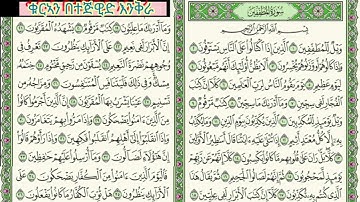 ቁርአን በተጅዊድ እንቅራ
سُورَةُ المُطَفِّفِينَ
بِسْمِ اللَّهِ الرَّحْمَٰنِ الرَّحِيمِ
وَيْلٌ لِّلْمُطَفِّفِينَ ١ ٱلَّذِينَ إِذَا ٱكْتَالُوا۟ عَلَى ٱلنَّاسِ يَسْتَوْفُونَ ٢
وَإِذَا كَالُوهُمْ أَو وَّزَنُوهُمْ يُخْسِرُونَ ٣ أَلَا يَظُنُّ أُو۟لَٰٓئِكَ أَنَّهُم مَّبْعُوثُونَ ٤
لِيَوْمٍ عَظِيمٍ ٥ يَوْمَ يَقُومُ ٱلنَّاسُ لِرَبِّ ٱلْعَٰلَمِينَ ٦ كَلَّآ إِنَّ كِتَٰبَ
ٱلْفُجَّارِ لَفِى سِجِّينٍ ٧ وَمَآ أَدْرَىٰكَ مَا سِجِّينٌ ٨ كِتَٰبٌ مَّرْقُومٌ ٩
وَيْلٌ يَوْمَئِذٍ لِّلْمُكَذِّبِينَ ١٠ ٱلَّذِينَ يُكَذِّبُونَ بِيَوْمِ ٱلدِّينِ ١١ وَمَا يُكَذِّبُ بِهِۦٓ
إِلَّا كُلُّ مُعْتَدٍ أَثِيمٍ ١٢ إِذَا تُتْلَىٰ عَلَيْهِ ءَايَٰتُنَا قَالَ أَسَٰطِيرُ ٱلْأَوَّلِينَ ١٣
كَلَّا بَلْ رَانَ عَلَىٰ قُلُوبِهِم مَّا كَانُوا۟ يَكْسِبُونَ ١٤ كَلَّآ إِنَّهُمْ عَن رَّبِّهِمْ
يَوْمَئِذٍ لَّمَحْجُوبُونَ ١٥ ثُمَّ إِنَّهُمْ لَصَالُوا۟ ٱلْجَحِيمِ ١٦ ثُمَّ يُقَالُ هَٰذَا
ٱلَّذِى كُنتُم بِهِۦ تُكَذِّبُونَ ١٧ كَلَّآ إِنَّ كِتَٰبَ ٱلْأَبْرَارِ لَفِى عِلِّيِّينَ ١٨
وَمَآ أَدْرَىٰكَ مَا عِلِّيُّونَ ١٩ كِتَٰبٌ مَّرْقُومٌ ٢٠ يَشْهَدُهُ ٱلْمُقَرَّبُونَ ٢١
إِنَّ ٱلْأَبْرَارَ لَفِى نَعِيمٍ ٢٢ عَلَى ٱلْأَرَآئِكِ يَنظُرُونَ ٢٣ تَعْرِفُ فِى
وُجُوهِهِمْ نَضْرَةَ ٱلنَّعِيمِ ٢٤ يُسْقَوْنَ مِن رَّحِيقٍ مَّخْتُومٍ ٢٥ خِتَٰمُهُۥ
مِسْكٌ وَفِى ذَٰلِكَ فَلْيَتَنَافَسِ ٱلْمُتَنَٰفِسُونَ ٢٦ وَمِزَاجُهُۥ مِن تَسْنِيمٍ ٢٧
عَيْنًا يَشْرَبُ بِهَا ٱلْمُقَرَّبُونَ ٢٨ إِنَّ ٱلَّذِينَ أَجْرَمُوا۟ كَانُوا۟ مِنَ ٱلَّذِينَ
ءَامَنُوا۟ يَضْحَكُونَ ٢٩ وَإِذَا مَرُّوا۟ بِهِمْ يَتَغَامَزُونَ ٣٠
وَإِذَا ٱنقَلَبُوٓا۟ إِلَىٰٓ أَهْلِهِمُ ٱنقَلَبُوا۟ فَكِهِينَ ٣١ وَإِذَا رَأَوْهُمْ قَالُوٓا۟
إِنَّ هَٰٓؤُلَآءِ لَضَآلُّونَ ٣٢ وَمَآ أُرْسِلُوا۟ عَلَيْهِمْ حَٰفِظِينَ ٣٣
فَٱلْيَوْمَ ٱلَّذِينَ ءَامَنُوا۟ مِنَ ٱلْكُفَّارِ يَضْحَكُونَ ٣٤
عَلَى ٱلْأَرَآئِكِ يَنظُرُونَ ٣٥ هَلْ ثُوِّبَ ٱلْكُفَّارُ مَا كَانُوا۟ يَفْعَلُونَ ٣٦